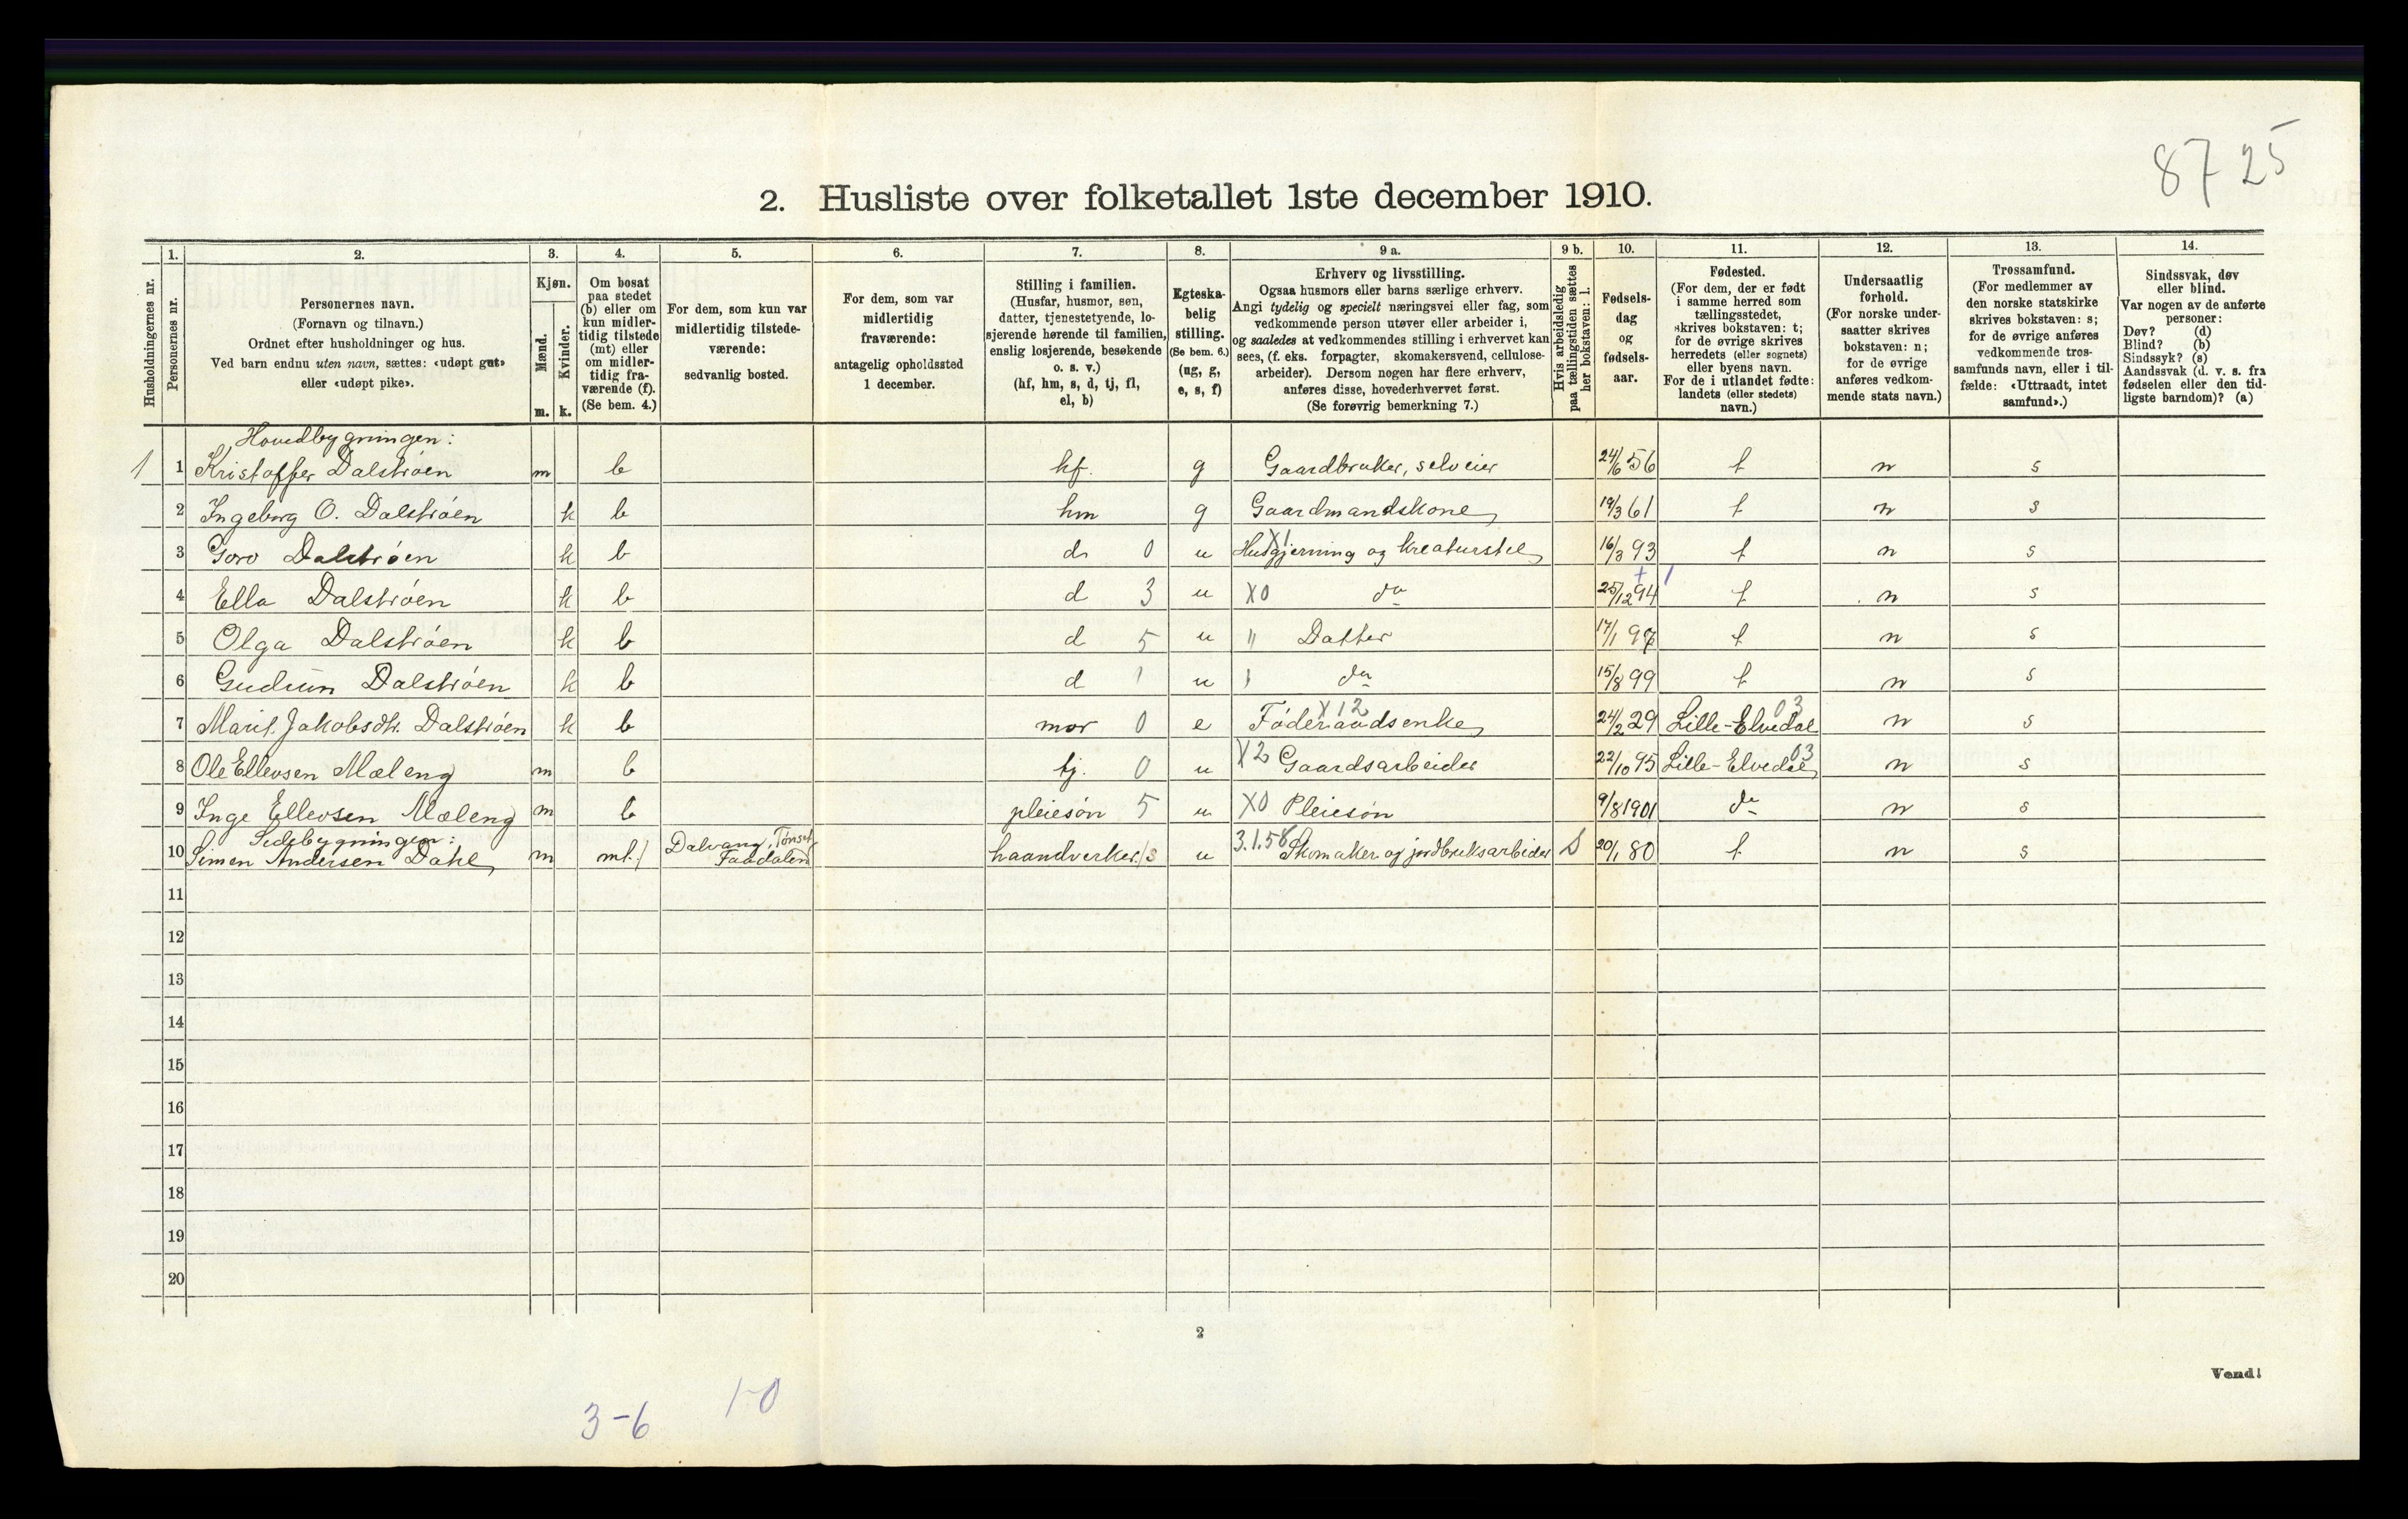 87 25
2. Husliste over folketallet 1ste december 1910.
1. 2. 3. 4. 5. 6. 7. 8. 9 a. 9 b. 10. 11. 12. 13. 14.
Husholdningernes nr.
Personernes nr.
Personernes navn.
(Fornavn og tilnavn.)
Ordnet efter husholdninger og hus.
Ved barn endnu uten navn, sættes: «udøpt gut»
eller «udøpt pike».
Kjøn.
Mænd.
Kvinder.
m. k.
Om bosat
paa stedet
(b) eller om
kun midler-
tidig tilstede
(mt) eller
om midler-
tidig fra-
værende (f).
(Se bem. 4.)
For dem, som kun var
midlertidig tilstede-
værende:
sedvanlig bosted.
For dem, som var
midlertidig
fraværende:
antagelig opholdssted
1 december.
Stilling i familien.
(Husfar, husmor, søn,
datter, tjenestetyende, lo-
sjerende hørende til familien,
enslig losjerende, besøkende
o. s. v.)
(hf, hm, s, d, tj, fl,
el, b)
Egteska-
belig
stilling.
(Se bem. 6.)
(ug, g,
e, s, f)
Erhverv og livsstilling.
Ogsaa husmors eller barns særlige erhverv.
Angi tydelig og specielt næringsvei eller fag, som
vedkommende person utøver eller arbeider i,
og saaledes at vedkommendes stilling i erhvervet kan
sees, (f. eks. forpagter, skomakersvend, cellulose-
arbeider). Dersom nogen har flere erhverv,
anføres disse, hovederhvervet først.
(Se forøvrig bemerkning 7.)
Hvis arbeidsledig
paa tællingstiden sættes
her bokstaven: l.
Fødsels-
dag
og
fødsels-
aar.
Fødested.
(For dem, der er født
i samme herred som
tællingsstedet,
skrives bokstaven: t;
for de øvrige skrives
herredets (eller sognets)
eller byens navn.
For de i utlandet fødte:
landets (eller stedets)
navn.)
Undersaatlig
forhold.
(For norske under-
saatter skrives
bokstaven: n;
for de øvrige
anføres vedkom-
mende stats navn.)
Trossamfund.
(For medlemmer av
den norske statskirke
skrives bokstaven: s;
for de øvrige anføres
vedkommende tros-
samfunds navn, eller i til-
fælde: «Uttraadt, intet
samfund».)
Sindssvak, døv
eller blind.
Var nogen av de anførte
personer:
Døv? (d)
Blind? (b)
Sindssyk? (s)
Aandssvak (d. v. s. fra
fødselen eller den tid-
ligste barndom)? (a)
Hovedbygningen:
1 1 Kristoffer Dalstrøen m b hf. g Gaardbruker, selveier 24/6 56 t n s
2 Ingeborg O. Dalstrøen k b hm g Gaardmandskone 19/3 61 t n s
3 Goro Dalstrøen k b d 0 u X1 Husgjerning og kreaturstel 16/3 93 t n s
4 Ella Dalstrøen k b d 3 u X0 do 25/12 94 t n s
5 Olga Dalstrøen k b d 5 u " Datter 17/1 97 t n s
6 Gudrun Dalstrøen k b d 1 u do 15/8 99 t n s
7 Marit Jakobsdtr. Dalstrøen k b mor 0 e X12 Føderaadsenke 24/2 29 Lille-Elvedal 03 n s
8 Ole Ellevsen Mæleng m b tj. 0 u X2 Gaardsarbeider 22/10 95 Lille-Elvedal 03 n s
9 Inge Ellevsen Mæleng m b pleiesøn 5 u X0 Pleiesøn 9/8 1901 do n s
Sidebygningen:
10 Simen Andersen Dahl m mt. Dalvang, Tønset, Faadalen haandverker s u 3.1.58 Skomaker og jordbruksarbeider 20/1 80 t n s
11
12
13
14
15
16
17
18
19
20
2
Vend!
3-6 1-0